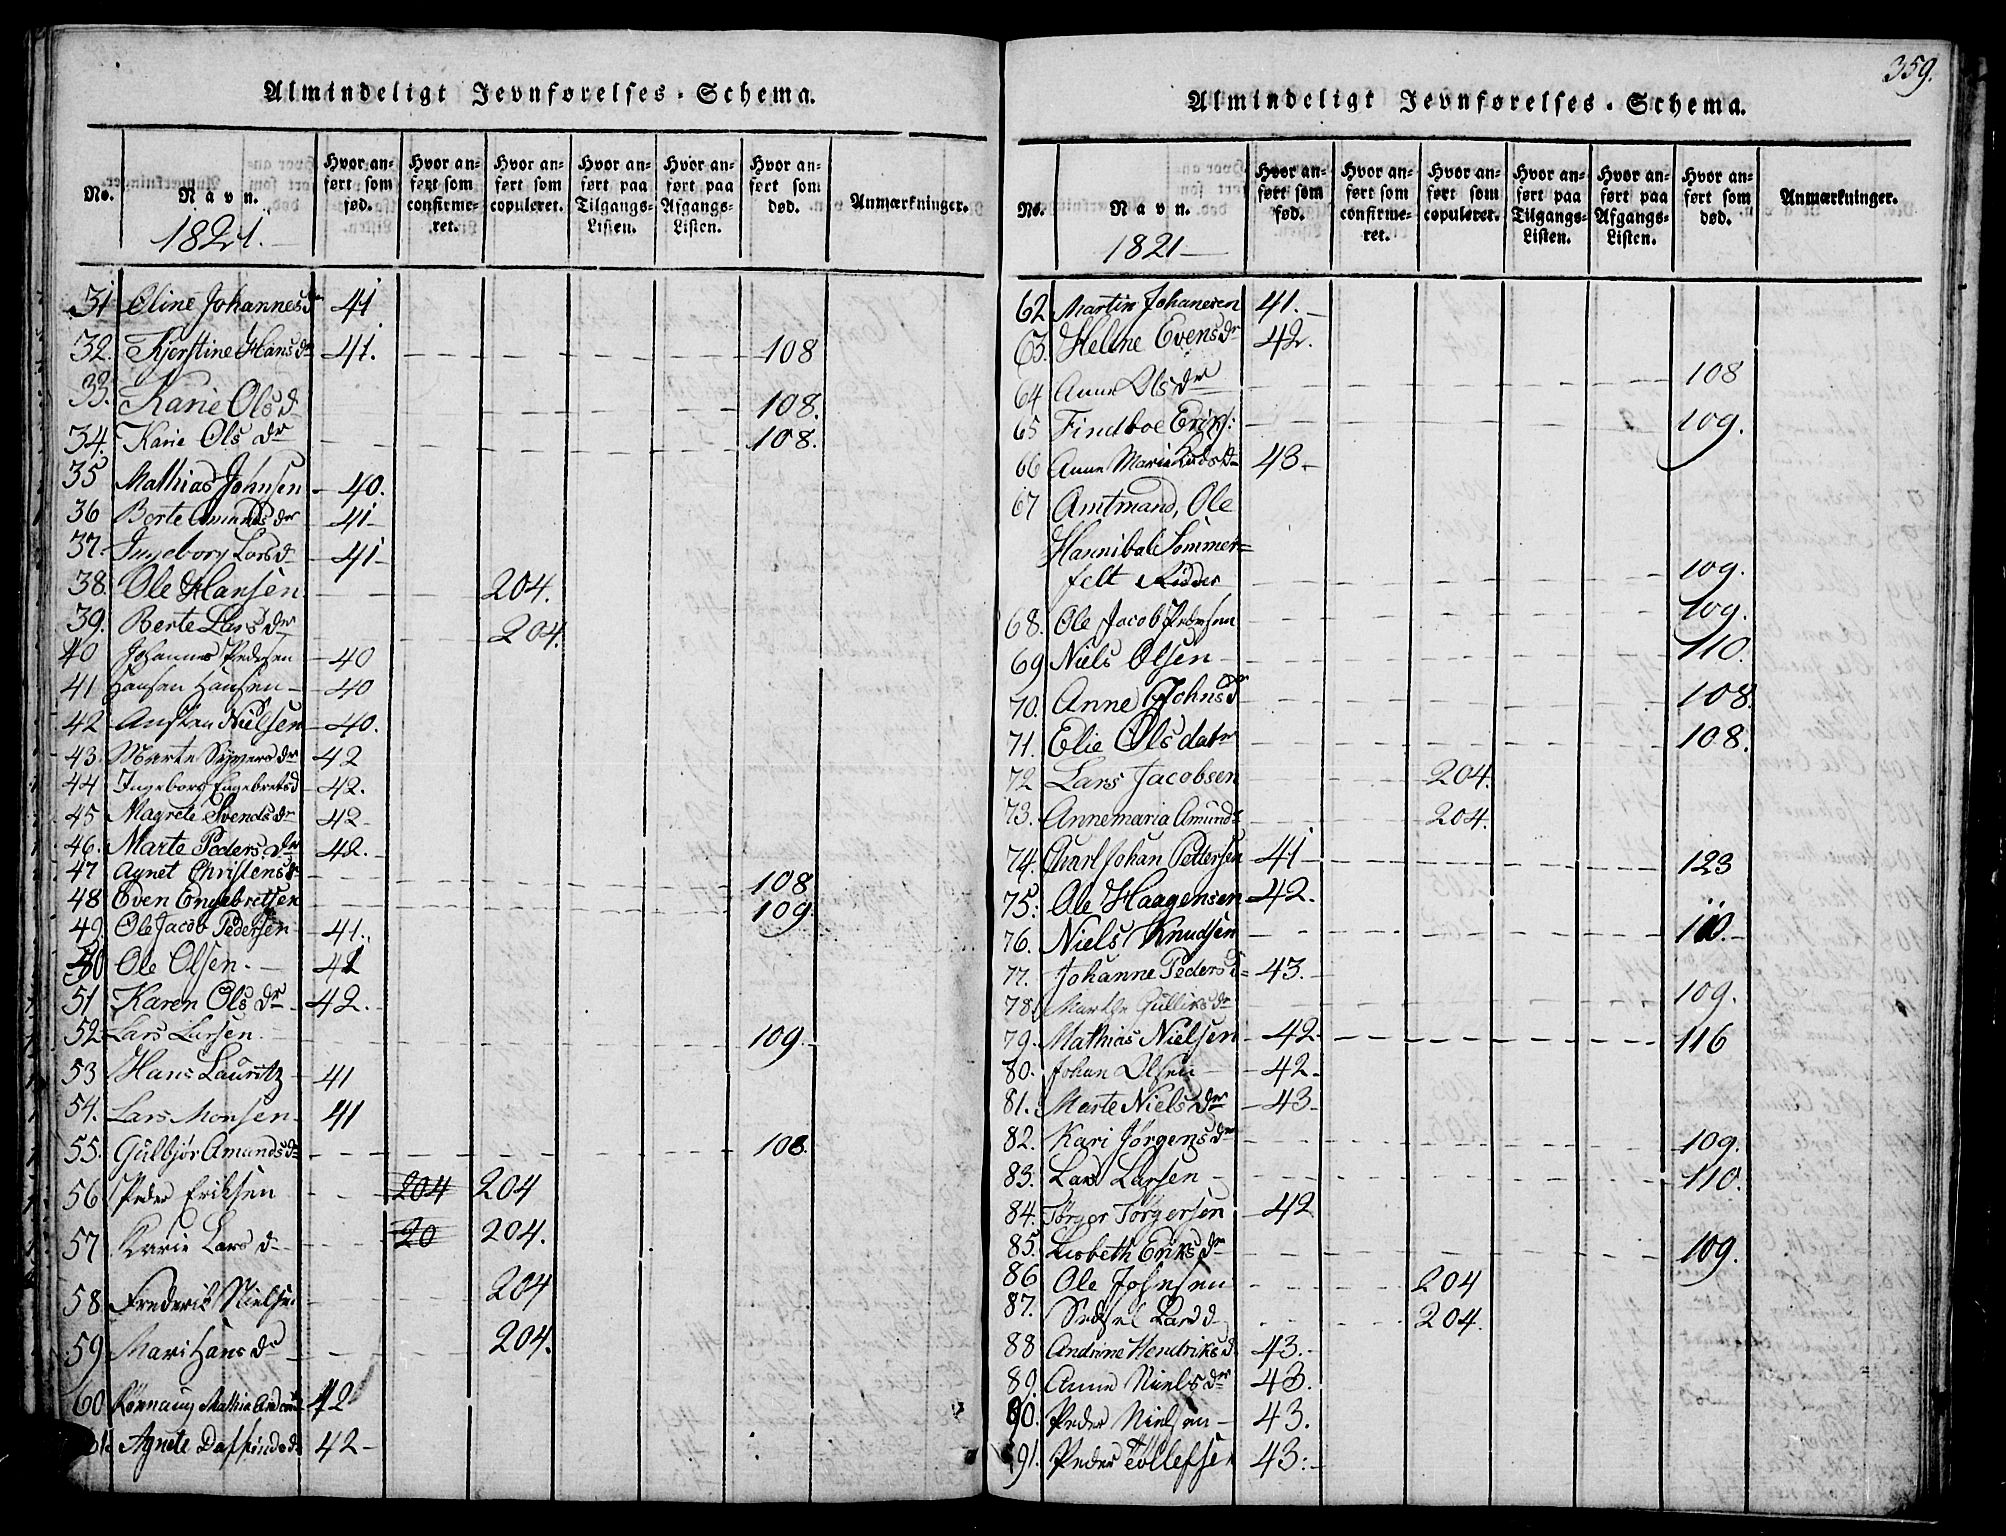 359.
Almindeligt Jevnførelses-Schema.
No. Navn. Hvor anført som fød. Hvor anført som confirmeret. Hvor anført som copuleret. Hvor anført paa Tilgangs-Listen. Hvor anført paa Afgangs-Listen. Hvor anført som død. Anmærkninger.
1821.
31 Oline Johannesdr 41
32. Kjerstine Hansdr 41. 108
33. Karie Olsd 108.
34. Karie Olsdr 108.
35 Mathias Johnsen 40.
36 Berte Amundsdr 41
37. Ingeborg Larsd 41
38. Ole Hansen 204.
39. Berte Larsdr 204.
40 Johannes Pedersen 40
41 Hansen Hansen 40
42 Nielsen 40.
43. Marte dr 42
44 Ingeborg Engebretsd 42.
45 Magrete Svendsdr 42
46. Marte Pedersdr 42.
47 Agnet Christensdr 108
48 Even Engebretsen 109.
49. Ole Jacob Pedersen 41.
50 Ole Olsen.
51 Karen Olsdr 42.
52 Lars Larsen. 109.
53 Hans Lauritz 41
54. Lars Monsen 41
55. Gulbjør Amundsd 108.
56 Peder Eriksen 204 204
57 Karie Larsd 20 204.
58. Frederik Nielsen 204
59 Mari Hansdr 204.
60 Rønnaug Mathia 42
61. Agnete d 42
Almindeligt Jevnførelses-Schema.
No. Navn. Hvor anført som fød. Hvor anført som confirmeret. Hvor anført som copuleret. Hvor anført paa Tilgangs-Listen. Hvor anført paa Afgangs-Listen. Hvor anført som død. Anmærkninger.
1821
62 Martin Johanesen 41.
63. Helene Evensdr 42.
64 Anne Olsdr 108
65 Findboe Eriks: 109.
66 Anne Marie 43
67 Amtmand, Ole
Hannibal Sommer=
felt Ridder 109.
68. Ole Jacob Pedersen 109.
69 Niels Olsen 110.
70. Anne Johnsd 108.
71. Elie Olsdatr 108.
72 Lars Jacobsen 204.
73. Annemaria Amunds 204.
74. Carl Johan Pettersen 41 123
75. Ole Haagensen 42.
76. Niels Knudsen 110.
77. Johanne Pedersd 43.
78. Marthe Gullirsdr 109.
79. Mathias Nielsen 42 116
80. Johan Olsen 42.
81. Marte Nielsdr 43
82. Kari Jørgensdr 109.
83. Lars Larsen 110.
84. Tørger Tørgersen 42
85. Lisbeth Eriksdr 109.
86 Ole Johnsen 204
87. Sidsel Larsd 204.
88 Andrine Hendriksd 43.
89. Anne Nielsdr 43.
90. Peder Nielsen 43.
91. Peder Tollefsen 43.